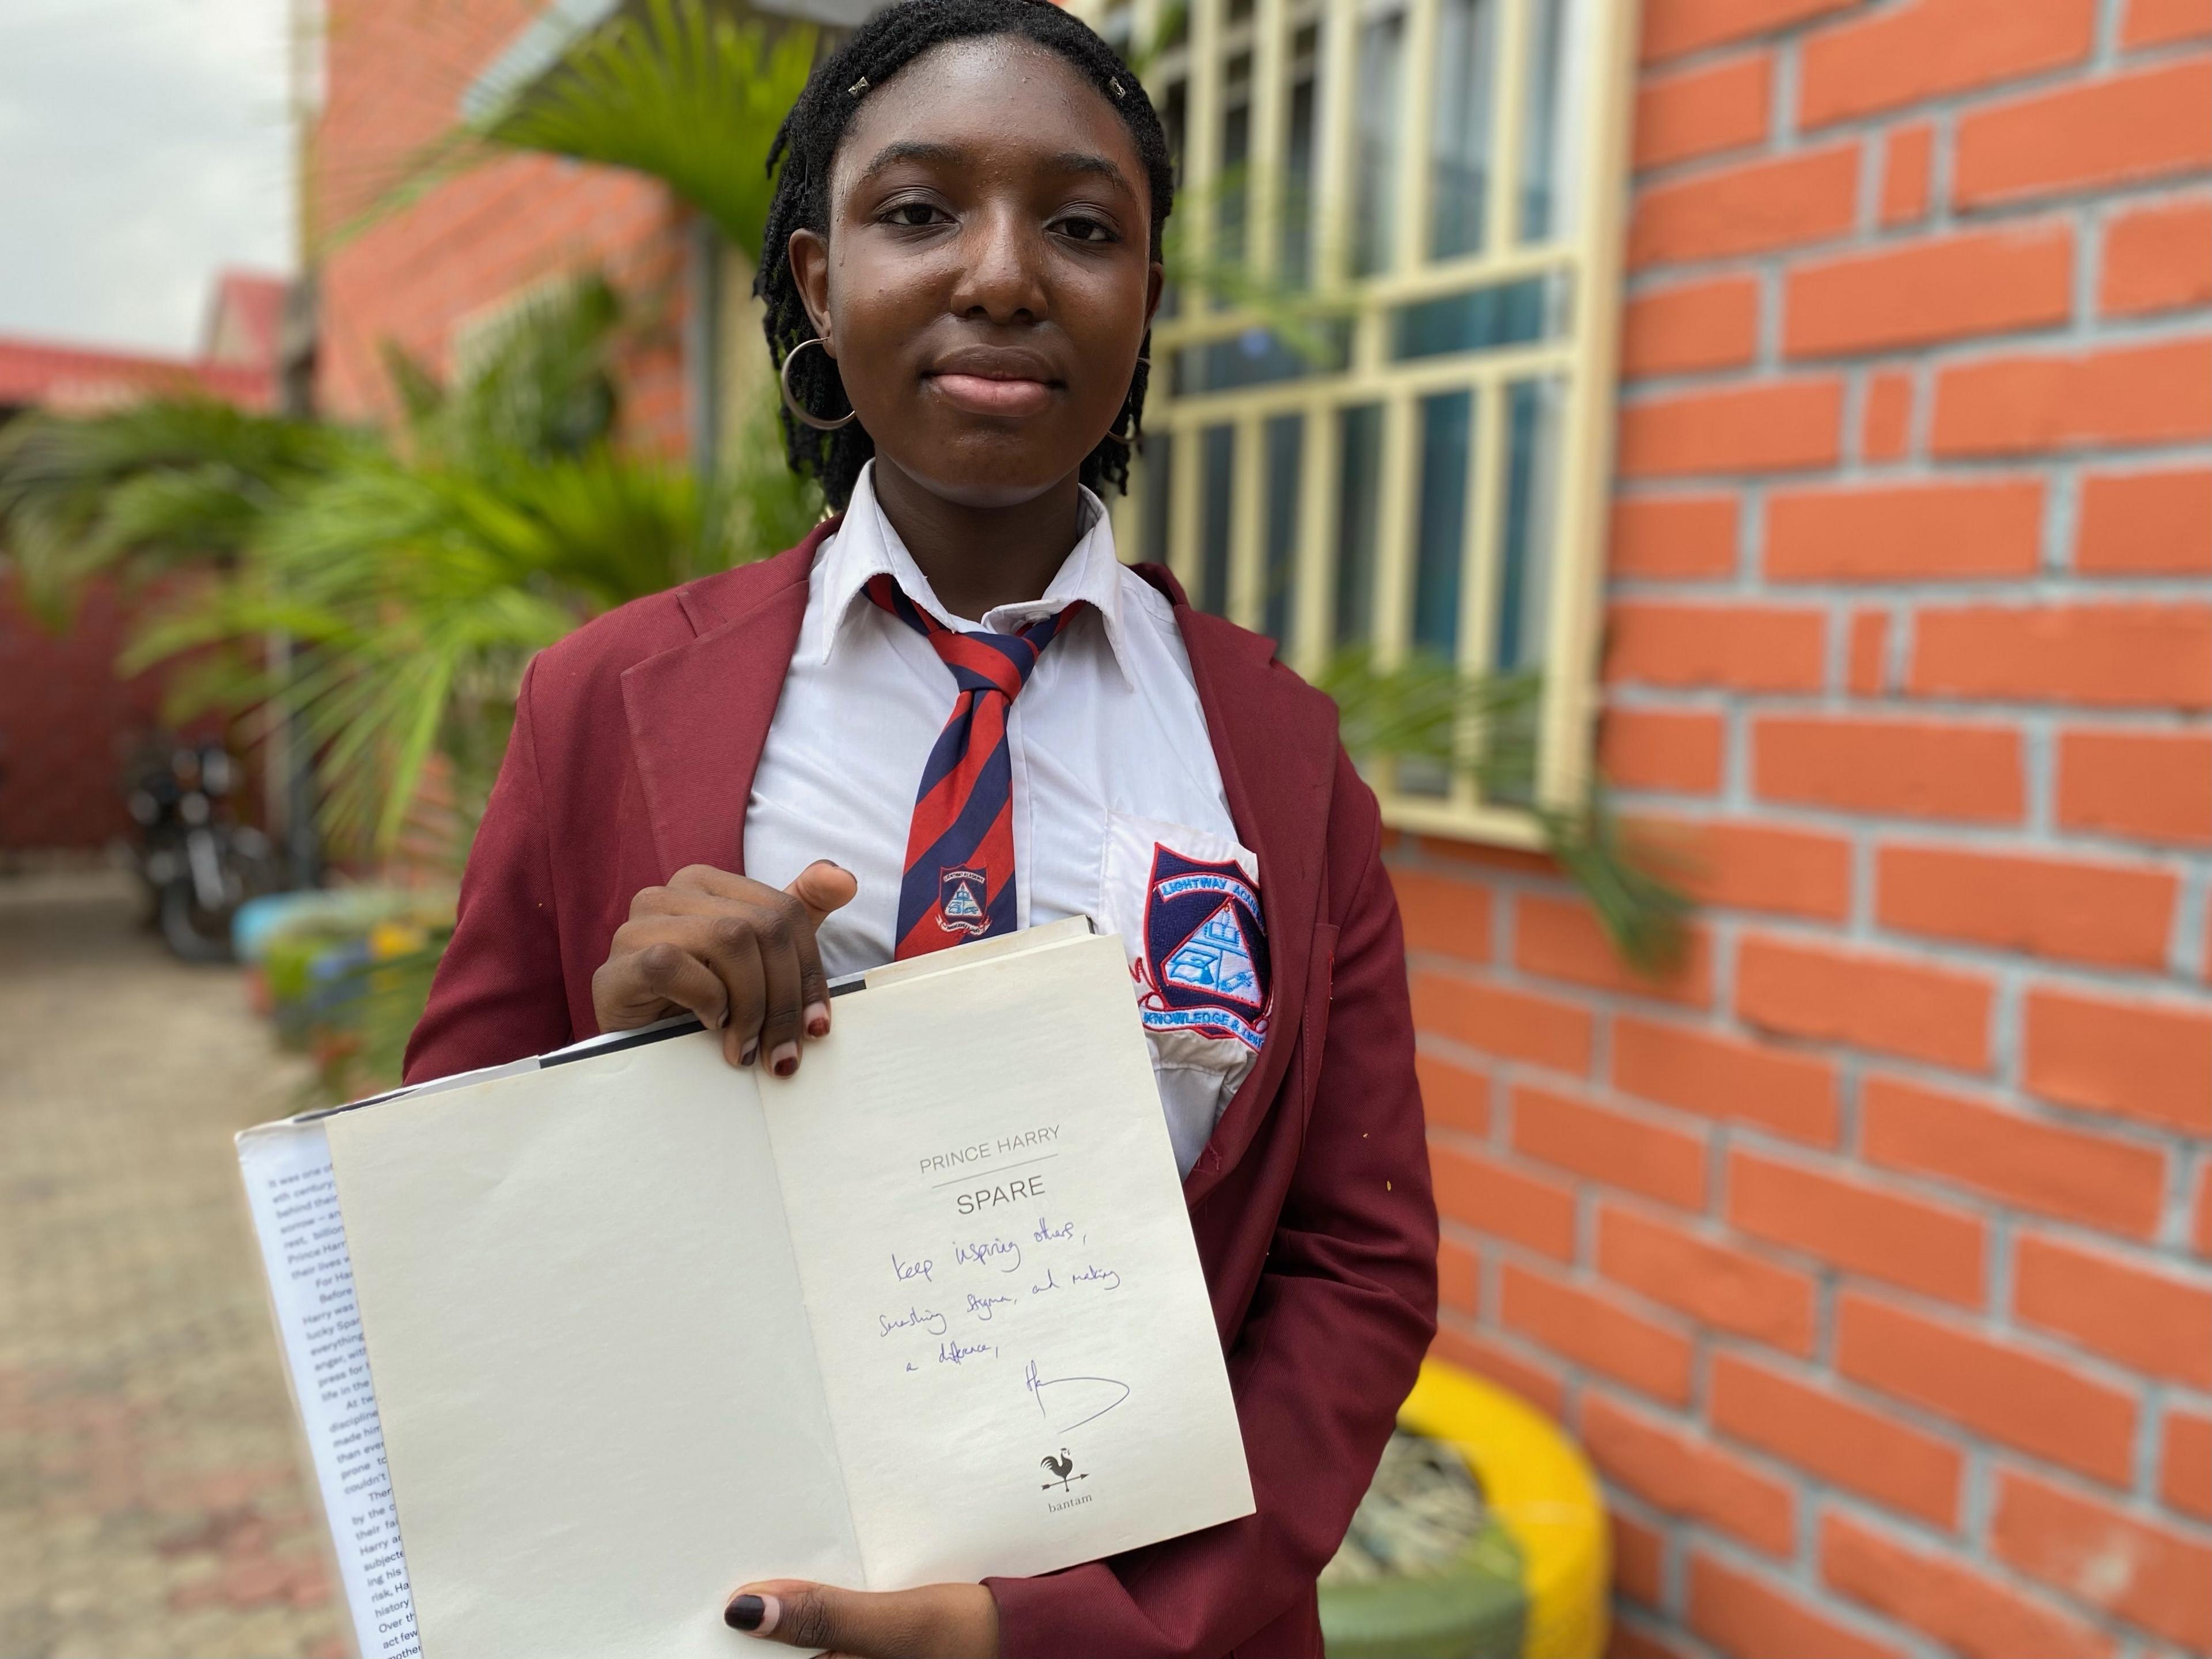 LIGHTWAY ACAD
KNOWLEDGE &
PRINCE HARRY
SPARE
keep inspiring others,
smashing stigma, and making
a difference,
bantam
It was one of
eth century:
behind their
sorrow – an
rest, billion
Prince Harr
their lives w
For Ha
Before
Harry was
lucky Spar
everything
anger, with
press for
life in the
At tw
discipline
made him
than ever
prone to
couldn't
Ther
by the c
their fa
Harry a
subjecte
ing his
risk, Ha
history
Over th
act few
mother